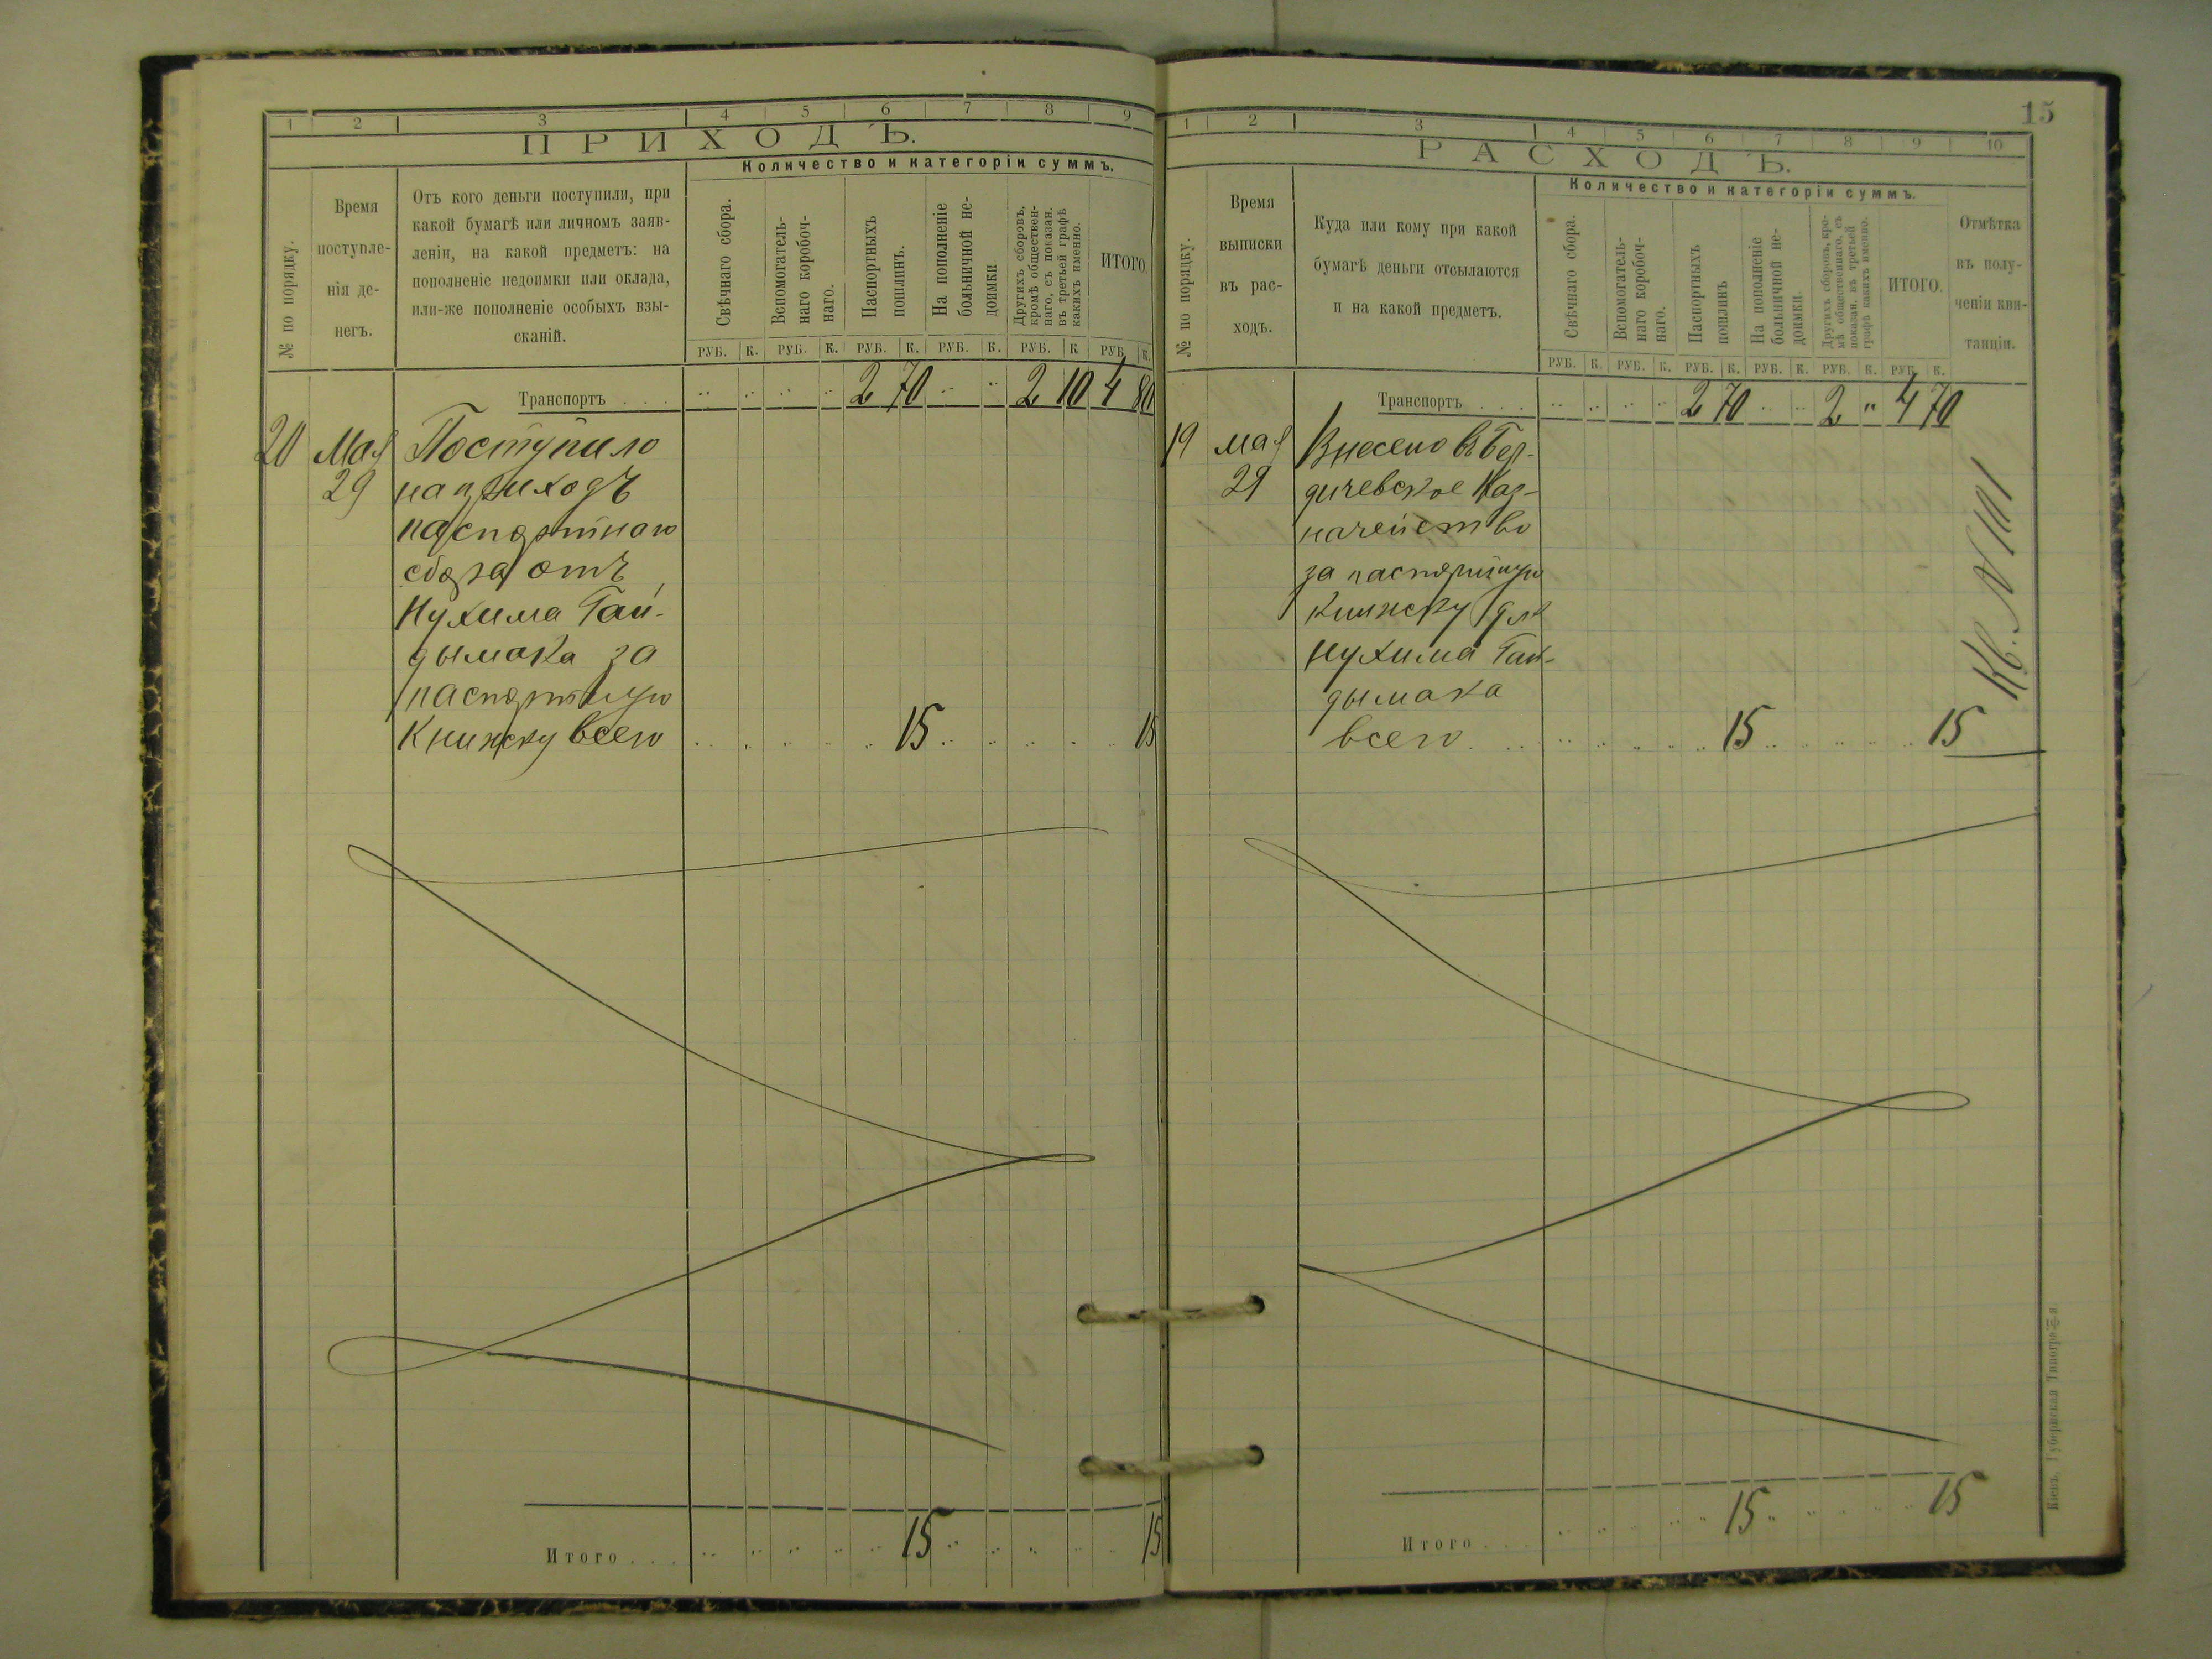 1 2 3 4 5 6 7 8 9
ПРИХОДЪ.
Количество и категоріи суммъ.
№ по порядку.
Время
поступле-
нія де-
негъ.
Отъ кого деньги поступили, при
какой бумагѣ или личномъ заяв-
леніи, на какой предметъ: на
пополненіе недоимки или оклада,
или-же пополненіе особыхъ взы-
сканій.
Свѣчнаго сбора.
Вспомогатель-
наго коробоч-
наго.
Паспортныхъ
пошлинъ.
На пополненіе
больничной не-
доимки
Другихъ сборовъ,
кромѣ обществен-
наго, съ показан.
въ третьей графѣ
какихъ именно.
ИТОГО.
РУБ. К. РУБ. К. РУБ. К. РУБ. К. РУБ. К РУБ. К.
Транспортъ . . . 2 70 2 10 4 80
20 Мая Поступило
29 на приходъ
паспортнаго
сбора отъ
Нухима Гай-
дымака за
паспортную
книжку всего 15 15
Итого . . . 15 15
15
1 2 3 4 5 6 7 8 9 10
РАСХОДЪ.
Количество и категоріи суммъ.
№ по порядку.
Время
выписки
въ рас-
ходъ.
Куда или кому при какой
бумагѣ деньги отсылаются
и на какой предметъ.
Свѣчнаго сбора.
Вспомогатель-
наго коробоч-
наго.
Паспортныхъ
пошлинъ
На пополненіе
больничной не-
доимки.
Другихъ сборовъ, кро-
мѣ общественнаго, съ
показан. въ третьей
графѣ какихъ именно.
ИТОГО.
Отмѣтка
въ полу-
ченіи кви-
танціи.
РУБ. К. РУБ. К. РУБ. К. РУБ. К. РУБ. К. РУБ. К.
Транспортъ . . . 2 70 2 " 4 70
19 мая Внесено въ Бер-
29 дичевское Каз-
начейство
за паспортную
книжку для
Нухима Гай-
дымака
всего 15 15
Кв. №
Итого . . . 15 15
Кіевъ, Губернская Типографія